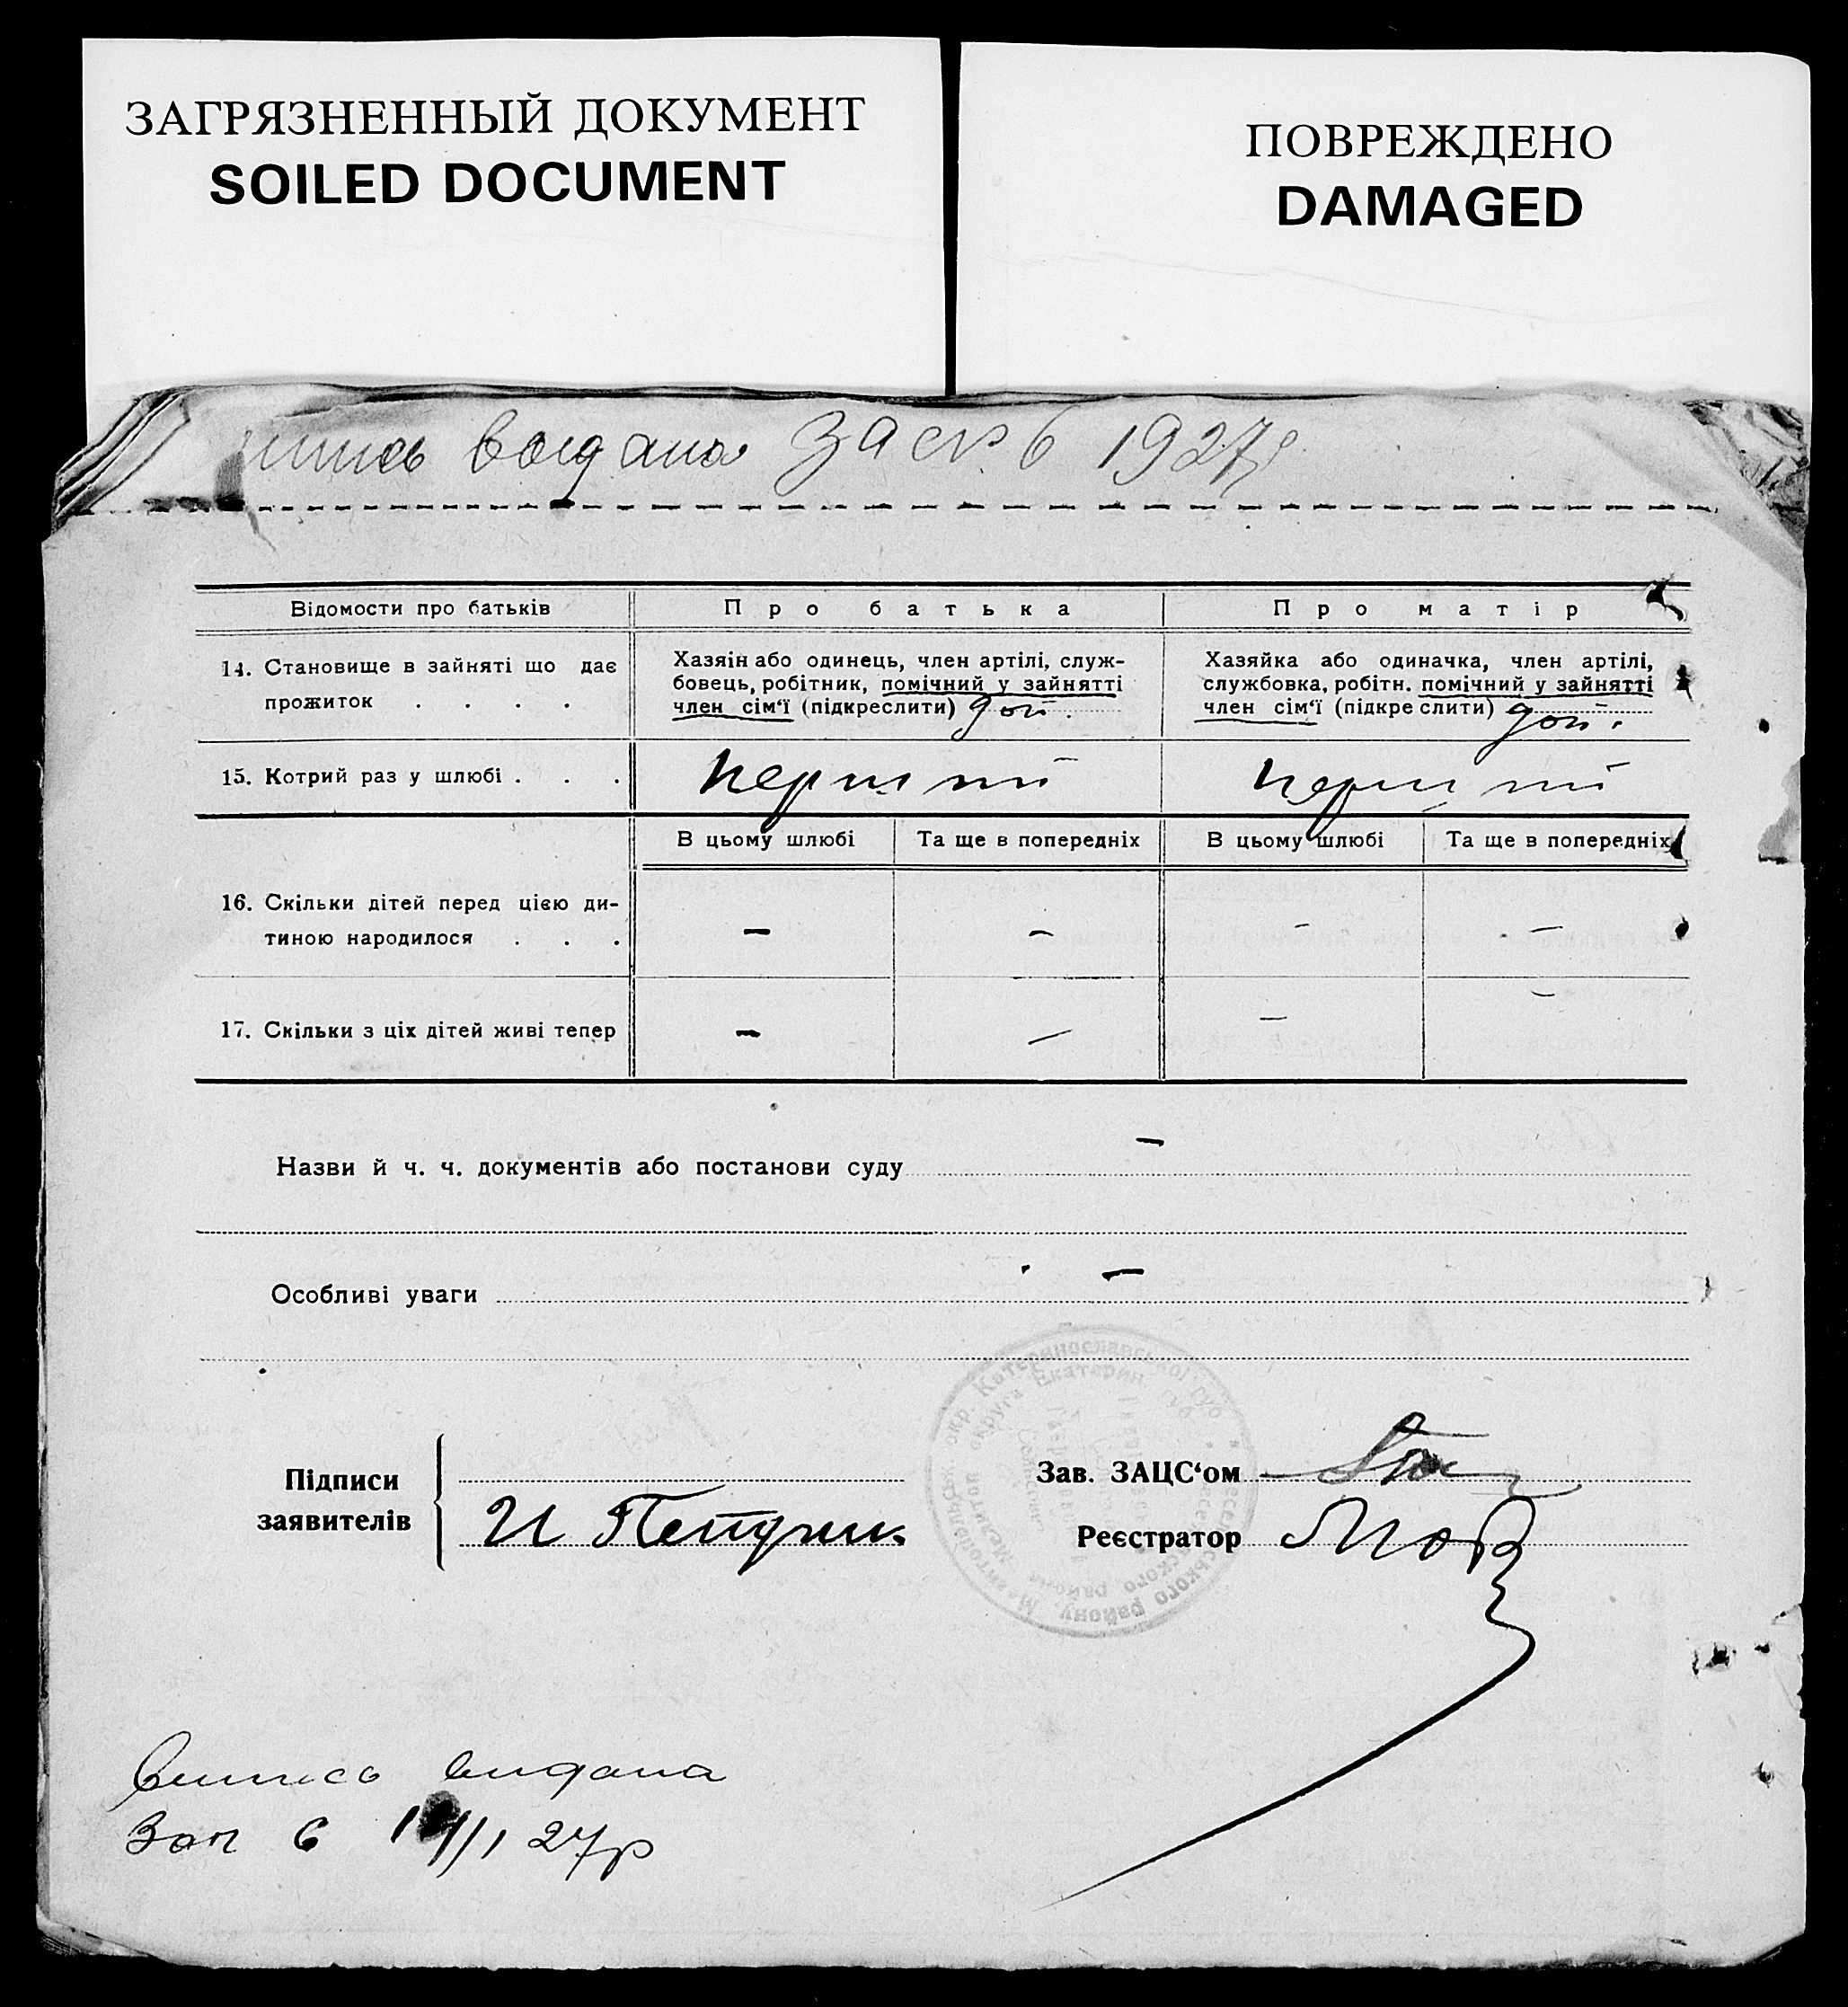 ЗАГРЯЗНЕННЫЙ ДОКУМЕНТ
SOILED DOCUMENT
ПОВРЕЖДЕНО
DAMAGED
видана за № 6 1927р
Відомости про батьків
Про батька
Про матір
14. Становище в зайняті що дає
прожиток . . . .
Хазяїн або одинець, член артілі, служ-
бовець, робітник, помічний у зайнятті
член сім‘ї (підкреслити) доп.
Хазяйка або одиначка, член артілі,
службовка, робітн. помічний у зайнятті
член сім‘ї (підкреслити) доп.
15. Котрий раз у шлюбі . . .
перший
перший
В цьому шлюбі
Та ще в попередніх
В цьому шлюбі
Та ще в попередніх
16. Скільки дітей перед цією ди-
тиною народилося . . .
– – – –
17. Скільки з ціх дітей живі тепер
– – – –
Назви й ч. ч. документів або постанови суду –
Особливі уваги –
Катеринославської губ
Екатерин. губ.
округа
району
района
Підписи
заявителів
И
Зав. ЗАЦС‘ом
Реєстратор
Випись видана
За № 6 1 /1 27р